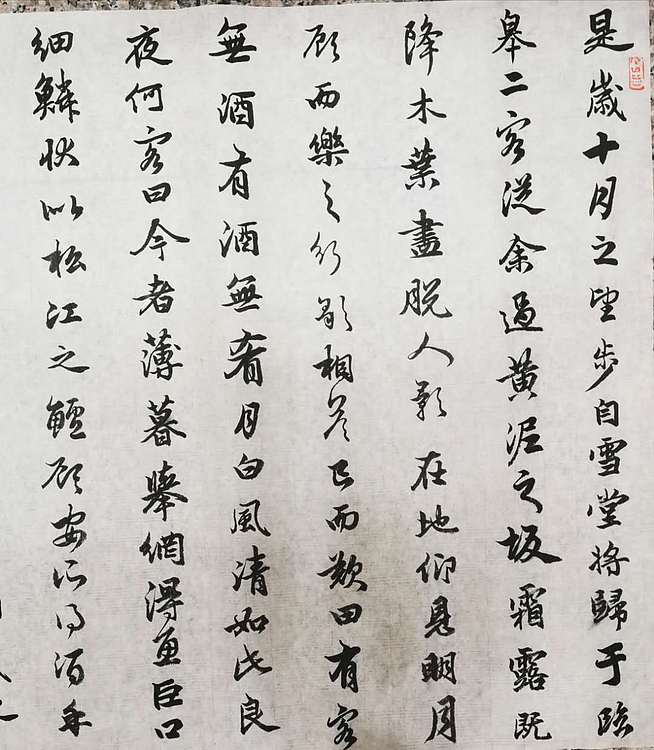 是歲十月之望步自雪堂將歸于臨
皋二客從余過黃泥之坂霜露既
降木葉盡脫人影在地仰見明月
顧而樂之行歌相答已而歎曰有客
無酒有酒無肴月白風清如此良
夜何客曰今者薄暮舉網得魚巨口
細鱗狀似松江之鱸顧安所得酒乎